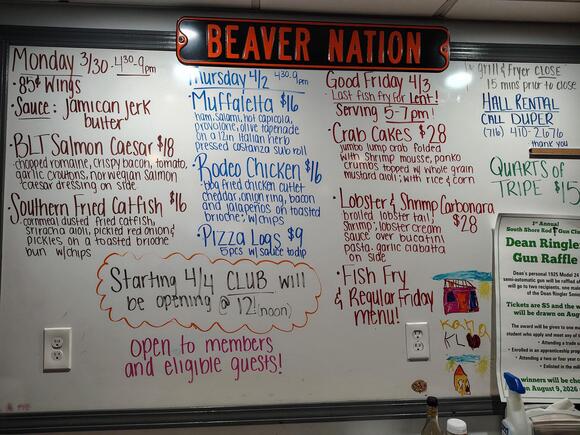 BEAVER NATION
Monday 3/30 4:30-9pm
• 85¢ Wings
• Sauce: Jamican Jerk
butter
• BLT Salmon Caesar $18
chopped romaine, crispy bacon, tomato,
garlic croutons, norwegian salmon
caesar dressing on side
• Southern Fried Catfish $16
cornmeal dusted fried catfish,
sriracha aioli, pickled red onion &
pickles on a toasted brioche
bun w/chips
Thursday 4/2 4:30-9pm
• Muffaletta $16
ham, salami, hot capicola,
provolone, olive tapenade
on a 12in Italian herb
pressed costanza sub roll
• Rodeo Chicken $16
bbq fried chicken cutlet
cheddar, onion ring, bacon
and jalapeños on toasted
brioche; w/chips
• Pizza Logs $9
5pcs w/ sauce to dip
Good Friday 4/3
Last fish fry for Lent!
Serving 5-7pm!
• Crab Cakes $28
jumbo lump crab folded
with Shrimp mousse, panko
crumbs topped w/ whole grain
mustard aioli; with rice & corn
• Lobster & Shrimp Carbonara
$28
broiled lobster tail,
shrimp; lobster cream
sauce over bucatini
pasta, garlic ciabatta
on side
• Fish Fry
& Regular Friday
menu!
Starting 4/4 CLUB will
be opening @ 12! (noon)
Open to members
and eligible guests!
grill & Fryer CLOSE
15 mins prior to close
HALL RENTAL
CALL DUPER
(716) 410-2676
thank you
QUARTS OF
TRIPE $15
1st Annual
South Shore Rod & Gun Clu
Dean Ringle
Gun Raffle
Dean's personal 1925 Model 24
semi-automatic gun will be raffled of
will go to two recipients, one male
of the Dean Ringler Senior
Tickets are $5 and the w
will be drawn on Augu
The award will be given to one
student who apply and meet any of
• Attending a trade
• Enrolled in an apprenticeship prog
• Attending a two or four year c
• Enlisted in the mili
winners will be cho
on August 9, 2026